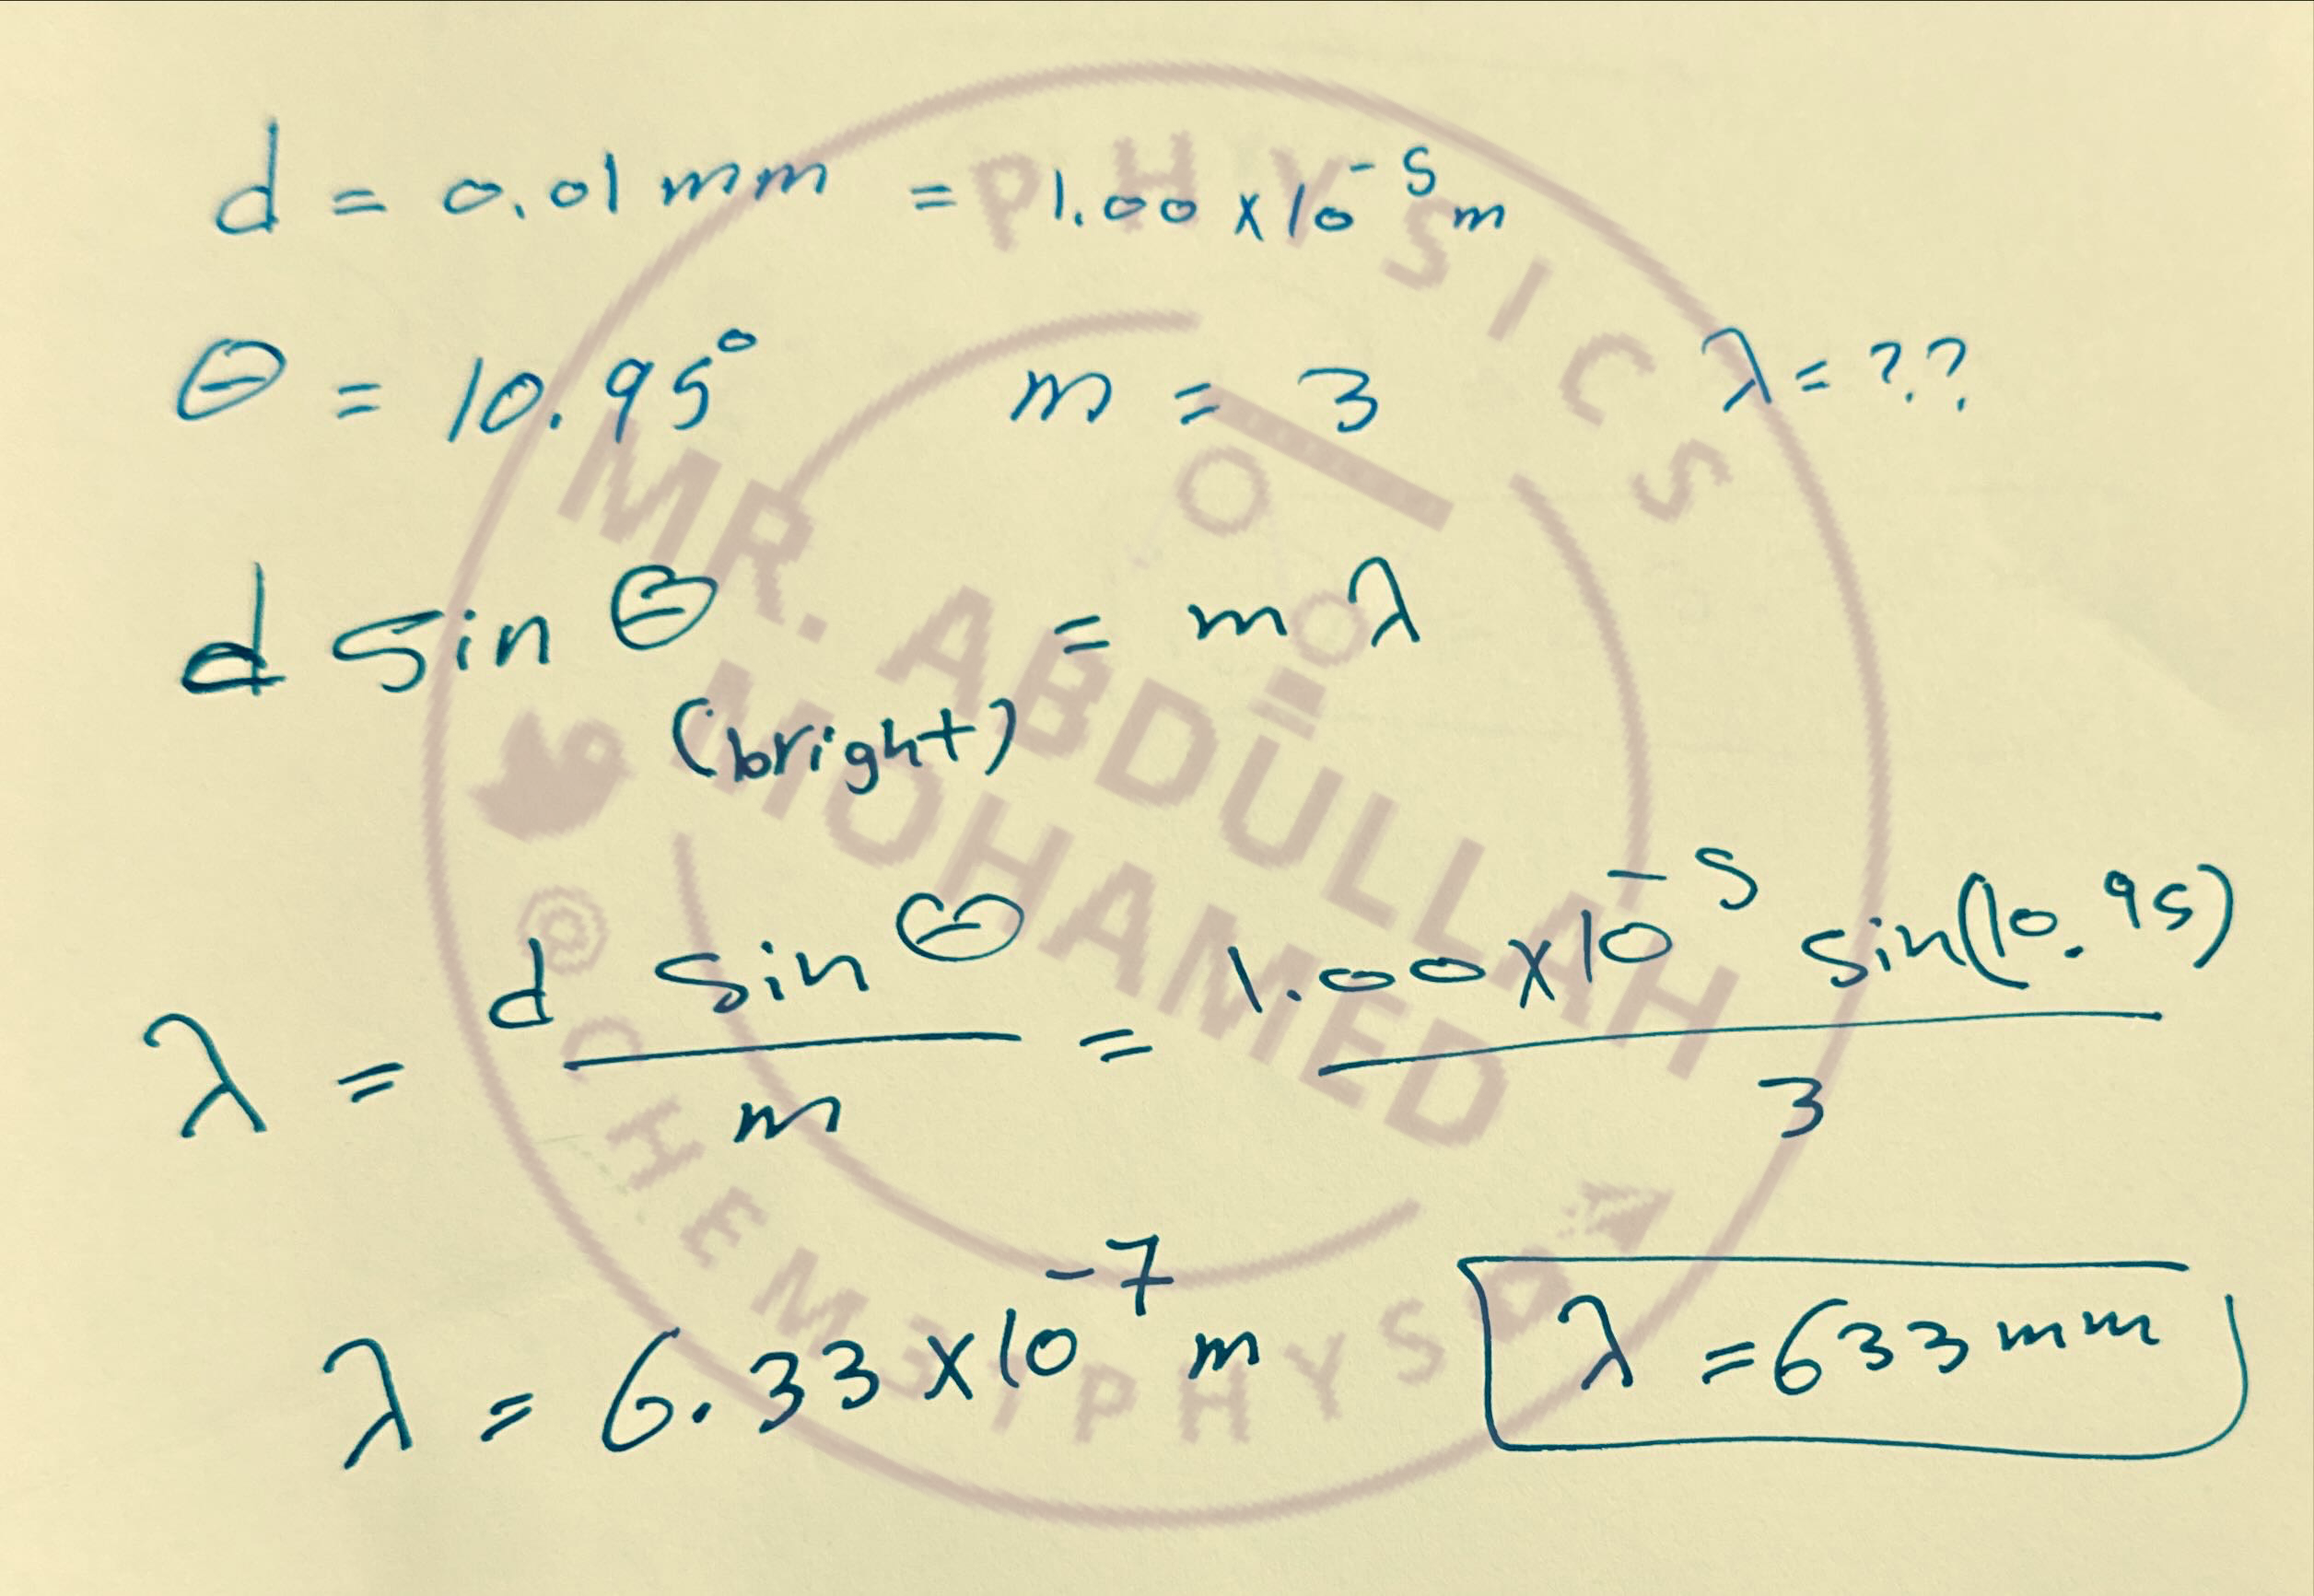 d = 0.01 mm = 1.00 x 10⁻⁵ m
θ = 10.95° m = 3 λ = ??
d sin θ = m λ
(bright)
λ = d sin θ / m = 1.00 x 10⁻⁵ sin(10.95) / 3
λ = 6.33 x 10⁻⁷ m λ = 633 mm
PHYSICS
MR. ABDULLAH
MOHAMED
@CHEM3TPHYSO